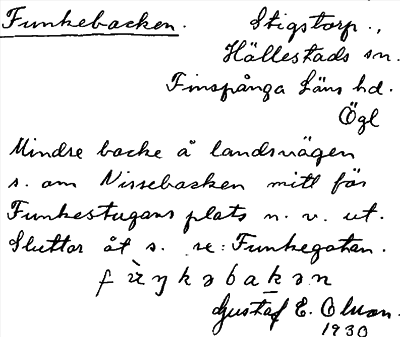 Funkebacken. Stigstorp.,
Hällestads sn.
Finspånga Läns hd.
Ögl
Mindre backe å landsvägen
s. om Nissebacken mitt för
Funkestugans plats n. v. ut.
Sluttar åt s. se: Funkegatan.
Gustaf E. Olson.
1930